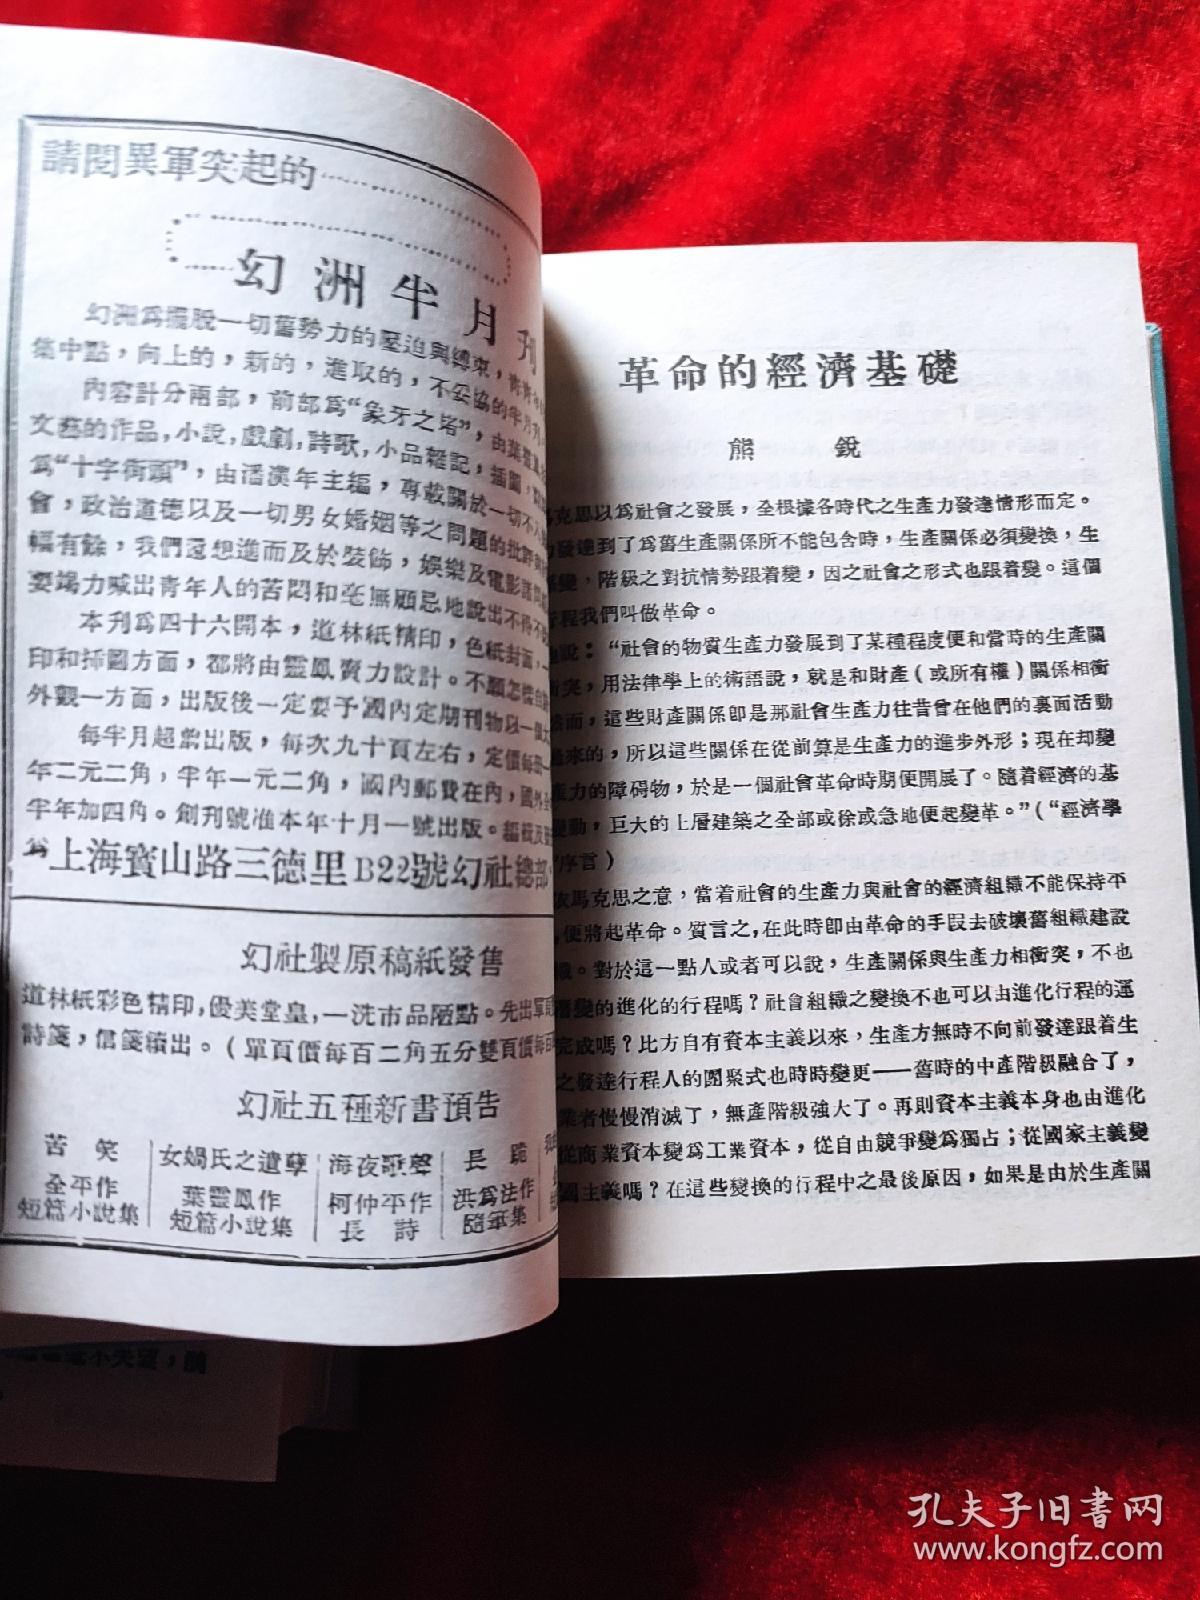 請閱異軍突起的
幻洲半月刊
幻洲爲擺脫一切舊勢力的壓迫與縛束，
集中點，向上的，新的，進取的，不妥協的半月刊
內容計分兩部，前部爲“象牙之塔”，由葉靈
文藝的作品，小說，戲劇，詩歌，小品雜記，插圖，
爲“十字街頭”，由潘漢年主編，專載關於一切不
會，政治道德以及一切男女婚姻等之問題的批評與
幅有餘，我們還想進而及於裝飾，娛樂及電影
要竭力喊出青年人的苦悶和毫無顧忌地說出不得不
本刊爲四十六開本，道林紙精印，色紙封面，
印和揷圖方面，都將由靈鳳賣力設計。不願怎樣自
外觀一方面，出版後一定要予國內定期刊物以一個
每半月超然出版，每次九十頁左右，定價每冊
年二元二角，半年一元二角，國內郵費在內，國外
半年加四角。創刊號准本年十月一號出版。編輯及
爲上海寶山路三德里B22號幻社總部
幻社製原稿紙發售
道林紙彩色精印，優美堂皇，一洗市品陋點。先出單
詩箋，信箋續出。（單頁價每百二角五分雙頁價每百
幻社五種新書預告
苦笑
全平作
短篇小說集
女媧氏之遺孽
葉靈鳳作
短篇小說集
海夜歌聲
柯仲平作
長詩
長跪
洪爲法作
隨筆集
革命的經濟基礎
熊銳
馬克思以爲社會之發展，全根據各時代之生產力發達情形而定。
力發達到了爲舊生產關係所不能包含時，生產關係必須變換，生
係變，階級之對抗情勢跟着變，因之社會之形式也跟着變。這個
行程我們叫做革命。
他說：“社會的物質生產力發展到了某種程度便和當時的生產關
衝突，用法律學上的術語說，就是和財產（或所有權）關係相衝
然而，這些財產關係即是那社會生產力往昔曾在他們的裏面活動
過來的，所以這些關係在從前算是生產力的進步外形；現在却變
產力的障碍物，於是一個社會革命時期便開展了。隨着經濟的基
變動，巨大的上層建築之全部或徐或急地便起變革。”（“經濟學
序言）
依馬克思之意，當着社會的生產力與社會的經濟組織不能保持平
，便將起革命。質言之，在此時即由革命的手段去破壞舊組織建設
織。對於這一點人或者可以說，生產關係與生產力相衝突，不也
漸變的進化的行程嗎？社會組織之變換不也可以由進化行程的運
完成嗎？比方自有資本主義以來，生產方無時不向前發達跟着生
之發達行程人的團聚式也時時變更——舊時的中產階級融合了，
業者慢慢消滅了，無產階級強大了。再則資本主義本身也由進化
從商業資本變爲工業資本，從自由競爭變爲獨占；從國家主義變
國主義嗎？在這些變換的行程中之最後原因，如果是由於生產關
孔夫子旧书网
www.kongfz.com